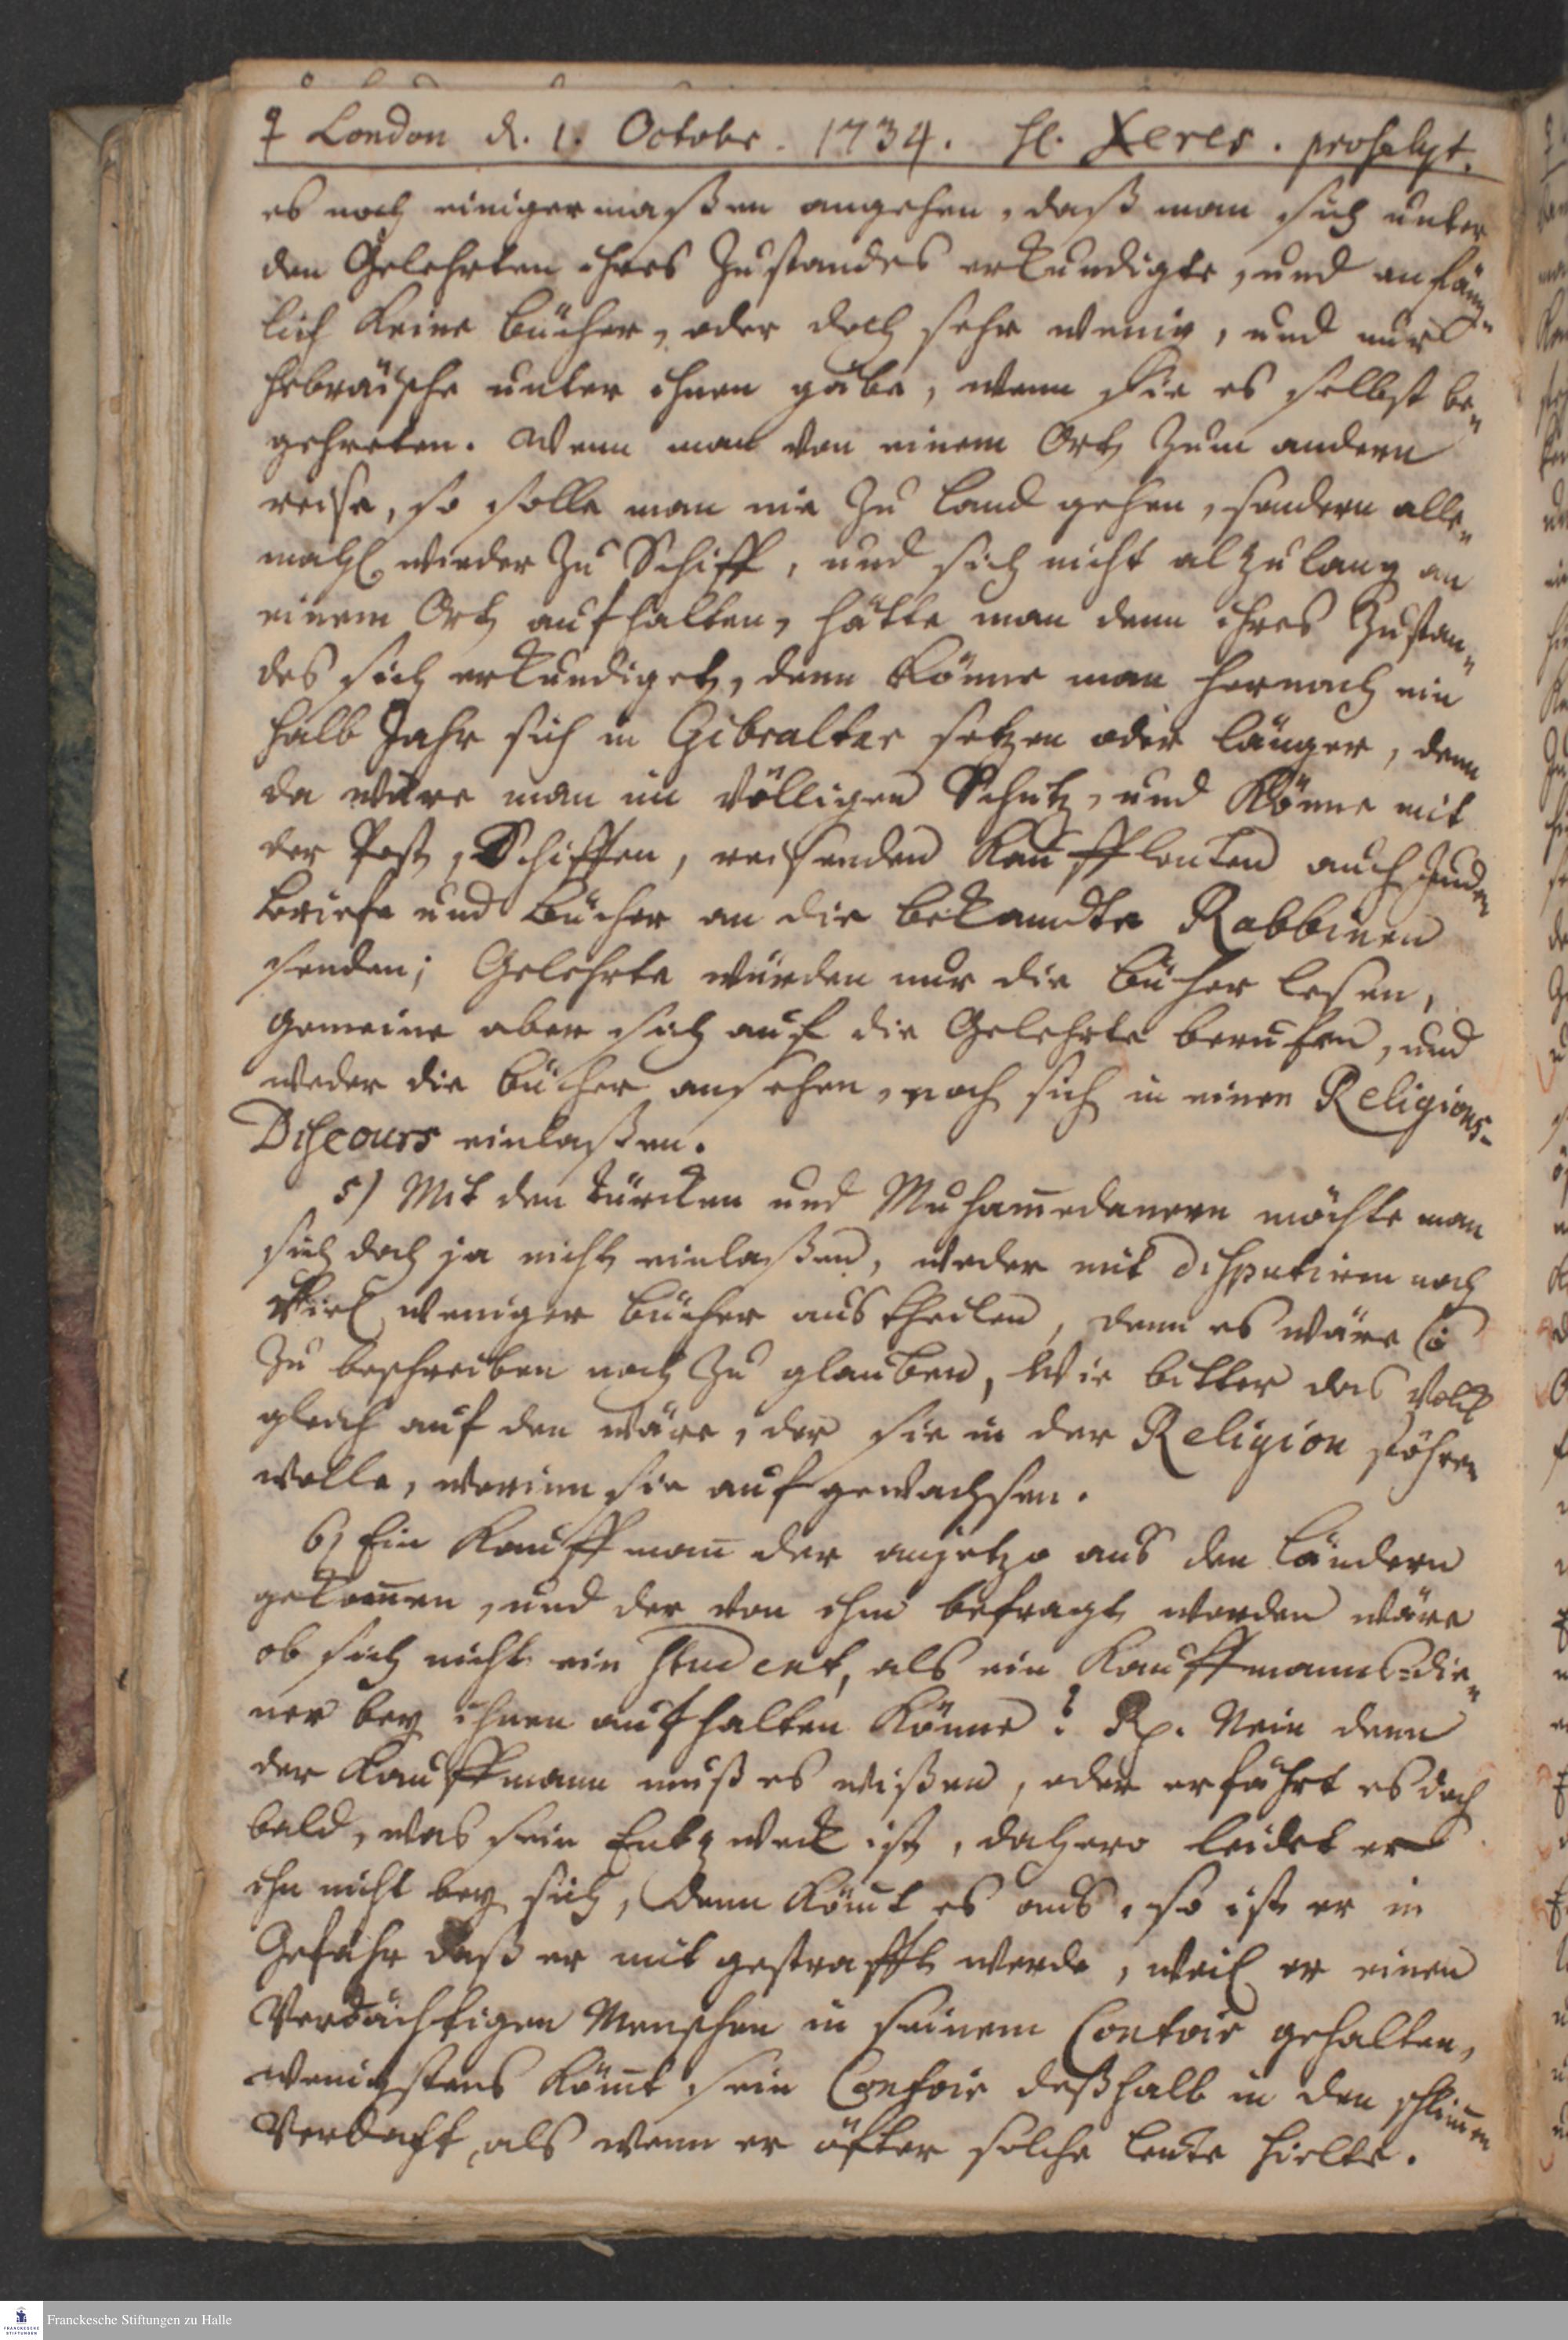 ♀ London d. 1. Octobr. 1734. H. Xeres. proselyt.
es noch einigermaßen angehen, daß man sich unter
den Gelehrten ihres Zustandes erkundigte, und anfäng¬
lich keine bücher, oder doch sehr wenig, und nur
hebräische unter ihnen gäbe, wenn sie es selbst be¬
gehreten. Wenn man von einem Ort zum andern
reise, so solle man nie zu land gehen, sondern alle¬
mahl wieder zu Schiff, und sich nicht alzulang an
einem Ort aufhalten, hätte man denn ihres Zustan¬
des sich erkundiget, denn könne man hernach ein
halb Jahr sich in Gibralter setzen oder länger, denn
da wäre man im völligen Schutz, und könne mit
der Post, Schiffen, reisenden Kauffleuten auch Juden
briefe und bücher an die bekandte Rabbinen
senden; Gelehrte würden nur die bücher lesen,
Gemeine aber sich auf die Gelehrte beruffen, und
weder die bücher ansehen, noch sich in einen Religions-
Discours einlaßen.
5) Mit den türcken und Muham̅edanern möchte man
sich doch ja nicht einlaßen, weder mit disputiren noch
viel weniger bücher austheilen, denn es wäre
zu beschreiben noch zu glauben, wie bitter das Volck
gleich auf den wäre, der sie in der Religion stöhren
wolle, worinn sie aufgewachsen.
6) Ein Kauffman̅ der anjetzo aus den ländern
gekom̅en, und der von ihm befragt worden wäre
ob sich nicht ein Student, als ein Kauffmanns=die¬
ner bey ihnen aufhalten könne? Rp. Nein denn
der Kauffmann muß es wißen, oder erfährt es doch
bald, was sein Entzweck ist, dahero leidet er
ihn nicht bey sich, denn köm̅t es aus, so ist er in
Gefahr daß er mit gestrafft werde, weil er einen
Verdächtigen Menschen in seinem Contoir gehalten,
wenigstens köm̅t sein Contoir deßhalb in den schlim̅en
Verdacht, als wenn er öfter solche leute hielte.
Franckesche Stiftungen zu Halle